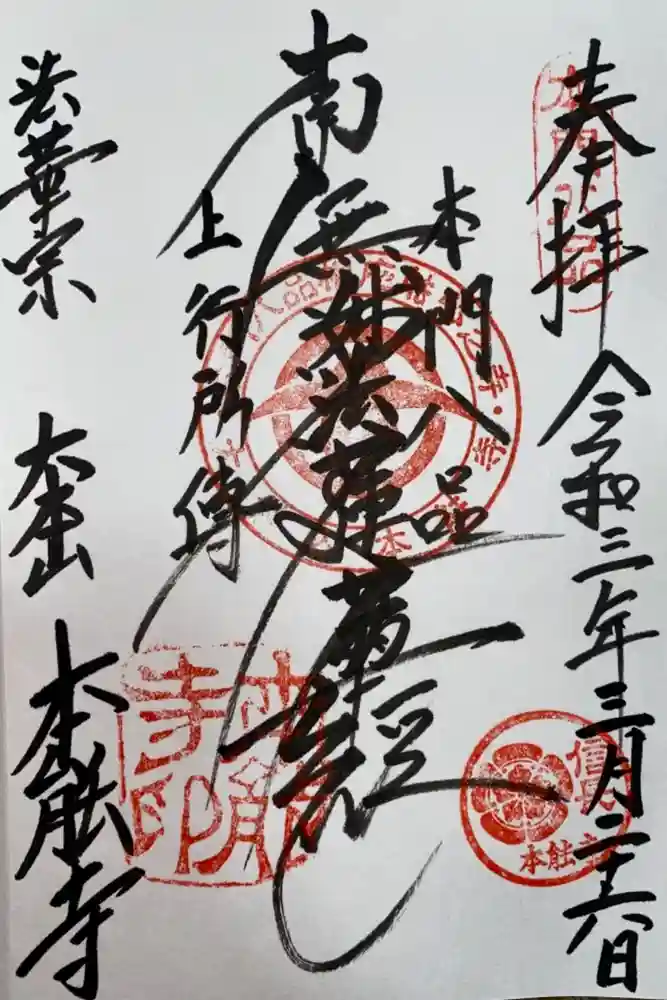 奉拝
令和三年三月二十六日
本門八品
南無妙法蓮華経
上行所傳
法華宗
大本山
本能寺
本能寺印
信長
本能寺